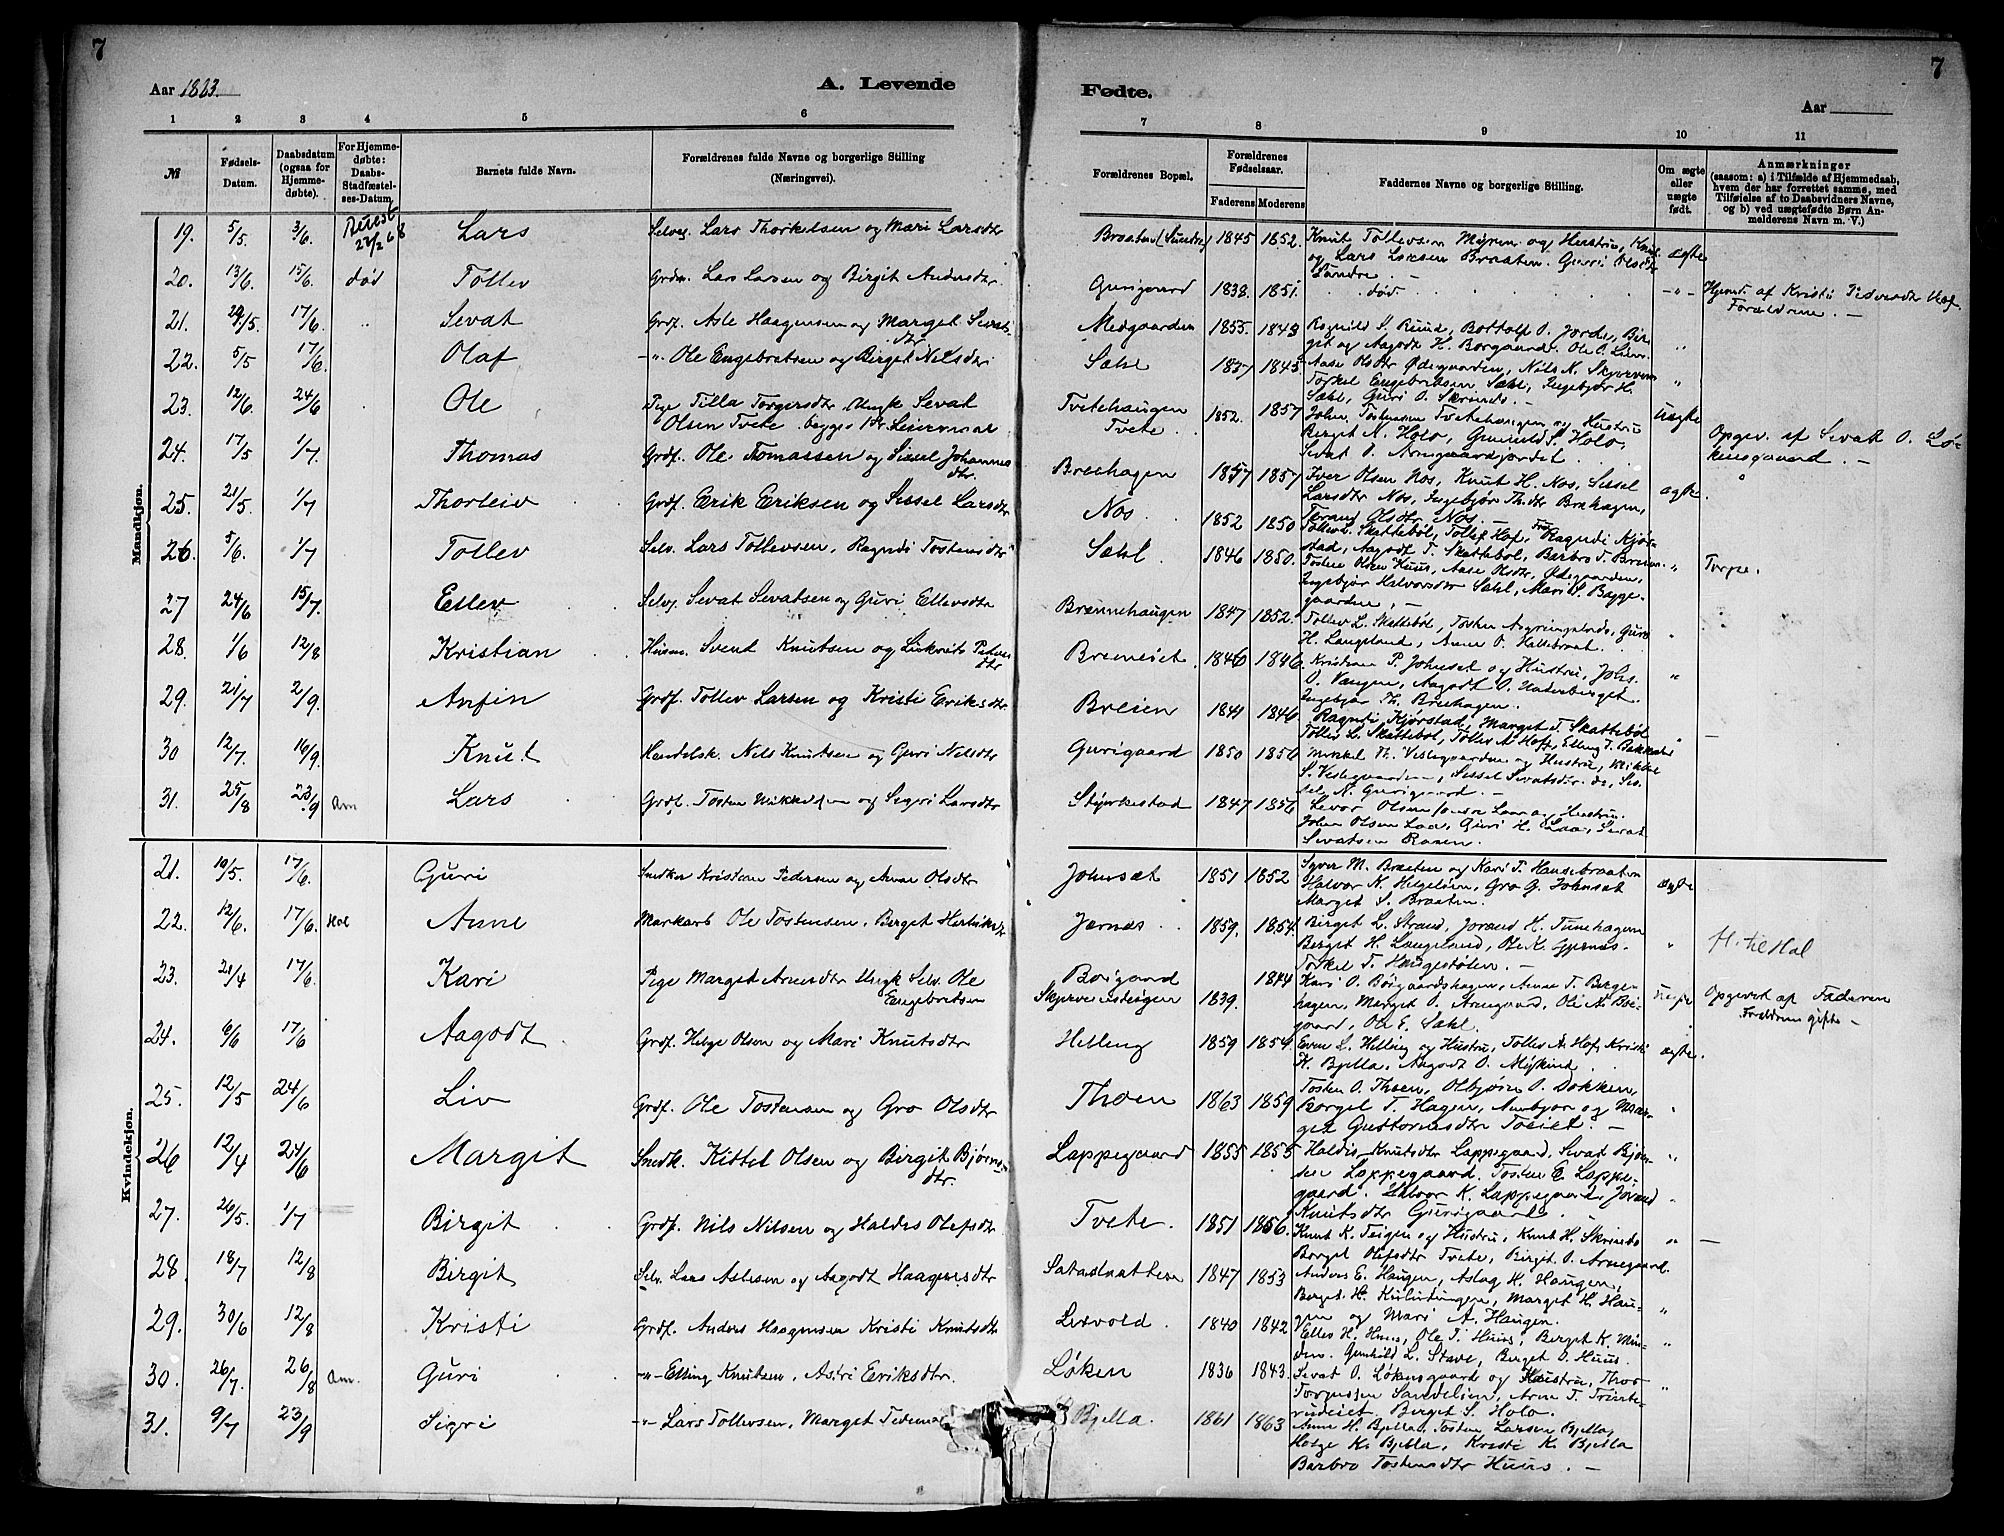 7
7
Aar 1883.
A. Levende
Fødte.
Aar
1 2 3 4 5 6 7 8 9 10 11
№
Fødsels-Datum.
Daabsdatum (ogsaa for Hjemmedøbte).
For Hjemmedøbte: Daabs-Stadfæstelses-Datum.
Barnets fulde Navn.
Forældrenes fulde Navne og borgerlige Stilling
(Næringsvei).
Forældrenes Bopæl.
Forældrenes Fødselsaar.
Faderens Moderens
Faddernes Navne og borgerlige Stilling.
Om ægte eller uægte født.
Anmærkninger
(saasom: a) i Tilfælde af Hjemmedaab,
hvem der har forrettet samme, med
Tilføielse af to Daabsvidners Navne,
og b) ved uægtefødte Børn Anmelderens Navn m. V.)
Mandkjøn.
19. 5/5. 3/6. Lars Selvej Lars Thorkelsen og Mari Larsdtr Braaten (Sundre) 1845 1852. Knut Tollevsen Myren og Hustru, Knut
og Lars Larsen Braaten. Guri Olsdtr ægte
Sundre. —
20. 13/6. 15/6. død Tollev Grdm. Lars Larsen og Birgit Andersdtr Gurigaard 1838. 1851. død. -"- Hjemd. af Kristi
Forældrene. —
21. 29/5. 17/6. " Sevat Grdf. Asle Haagensen og Marget Sevatsdtr Medgaarden 1855. 1843 Ragnild S. Ruud, Bottolf O. Jorde, Birget og Aagodt H. Borgaard. Ole O. "
22. 5/5 17/6. Olaf -"- Ole Engebretsen og Birget Nilsdtr Sæhl 1837 1845. Aase Olsdtr Ødegaarden, Nils N. Skjerven "
Torkel Engebritsen Sæhl, Ingebjør H.
Sæhl, Guri O. Skrinde. —
23. 12/6. 24/6 Ole Pige Tilla Torgersdtr, Ungk Sevat Tvetehaugen 1852. 1857 John Tostensen Tvetehaugen og Hustru uægte
Olsen Tvete. begges 1ste Leiermaal Tvete. Birget N. Holo, Gunhild S. Holo, Opgiv. af Sevat O. Løkensgaard. —
Sevat O. Arnegaardjordet.
24. 17/5 1/7. Thomas Grdf. Ole Tomassen og Sissel Johannesdtr. Breehagen 1857 1857 Iver Olsen Nos, Knut H. Nos, Sissel ægte. "
Larsdtr Nos, Ingebjør Thdtr Brehagen,
25. 21/5. 1/7 Thorleiv Grdf. Erik Eriksen og Sissel Larsdtr Nos. 1852 1850 Olsdtr Nos. —
26. 5/6. 1/7 Tollev Selv. Lars Tollevsen, Ragndi Tostensdtr Sæhl. 1846 1850. Tollev L. Skattebøl, Tollef Hof, Fru Ragndi Kjørstad, Aagodt T. Skattebøl, Barbro T. Breien. " Torpe.
Tosten Olsen Huus, Aase Olsdtr, Ødegaarden,
Ingebjør Halvorsdtr Sæhl, Mari S. Byggegaarden, —
27 24/6 15/7. Ellev Selvj. Sevat Sevatsen og Guri Ellevsdtr Brennehaugen 1847 1852. Tollev L. Skattebøl, Tosten Guri "
H. Langeland, Anne O. Hallebraat.
28. 1/6 12/8 Kristian Husm. Svent Knutsen og Petersdtr 1846 1846. Kristian P. Johnset og Hustru, Johs. "
O. Vangen, Aagodt O. Underberget.
Ingebjør Th. Brehagen.
29. 21/7 2/9. Anfin Grdf. Tollev Larsen og Kristi Eriksdtr. Breien 1841 1846. Ragndi Kjørstad, Marget T. Skattebøl "
Tollev L. Skattebøl, Tollev A. Hof, Elling T. —
30 12/7. 16/9. Knut Handelsk. Nils Knutsen og Guri Nilsdtr Gurigaard 1850 1856 Mikkel Th. Vestegaarden og Hustru, Mikkel
S. Vestegaarden, Sissel Sevatsdtr. do, Sissel N. Gurigaard. —
31. 25/8 23/9 Am Lars Grdf. Tosten Mikkelsen og Sigri Larsdtr Styrkestad 1847 1856. Levor Olsen Laa og Hustru.
John Olsen Laa, Guri H. Laa, Sevat
Sevatsen Rosen.
Kvindekjøn.
21. 10/5. 17/6. Guri Snedker Kristian Pedersen og Anne Olsdtr Johnsæt 1851 1852 Syver M. Braaten og Kari T. Hansebraaten
Halvor N. Helgesøen, Gro G. Johnsæt ægte
Marget S. Braaten.
22. 12/6. 17/6. Hol Anne Markarb Ole Tostensen, Birget Jørnæs 1859. 1854. Birget L. Strand, Jorand H. Tunehagen
Birget H. Langeland, Ole K. Gjernæs. " H. til Hol
Torkel T. Haugestølen. —
23. 21/4 17/6. Kari Pige Marget Arnesdtr Ungk Selv. Ole Borgaard 1844 Kari O. Børgaardshagen, Anne T. Bergehagen, Marget O. Arnegaard, Uægte Opgivet af Faderen
Engebretsen 1839. Ole E. Sæhl. Forældrene gifte —
24. 6/6 17/6 Aagodt Grdf. Helge Olsen og Mari Knutsdtr Helling 1859 1854. Even L. Helling og Hustru, Tollev A. Hof, Kristi ægte.
K. Bjella, Aagodt O. Myking.
25. 12/5 24/6 Liv Grdf. Ole Tostensen og Gro Olsdtr Thoen 1863 1859 Tosten O. Thoen, Olbjør O. Dokken,
Borgel T. Hagen, Annbjør og Marget Guttormsdtr Toeiet. — "
26 12/4 24/6 Margit Snedk. Kittel Olsen og Birgit Bjørnsdtr. Lappegaard 1855 1855 Haldis Knutsdtr Lappegaard, Sevat Bjørnsen Lappegaard, Tosten E. Lappegaard. Halvor K. Lappegaard, Jorand "
Knutsdtr Gurigaard.
27. 26/5. 1/7 Birgit Grdf. Nils Nilsen og Haldis Olefsdtr Tvete. 1851 1856. Knut K. Teigen og Hustru, Knut H. Skrinde " —
Borgel Olefsdtr Tvete, Birgit O. Arnegaard.
28. 18/7 12/8 Birgit Selv. Lars Aslesen og Aagodt Haagensdtr Sataslaatten 1847 1853 Anders E. Haugen, Aslag H. Haugen,
Birget H. Marget H. Haugen og Mari A. Haugen. "
29. 30/6 12/8 Kristi Grdf. Anders Haagensen Kristi Knutsdtr 1840 1842 Ellev H. Huus, Ole T. Huus, Birget K. "
Gunhild L. Stave, Birget O. Huus.
30. 26/7. 26/8 Am. Guri -"- Elling Knutsen, Asbri Eriksdtr. Løken 1836 1843. Sevat O. Løkensgaard og Hustru, Thor "
Torgussen Sandelien, Arne T.
Birget S. Holo.
31. 9/7 23/9 Sigri -"- Lars Tollevsen, Marget Bjella. 1861 1863 Anne H. Bjella, Tosten Larsen Bjella,
Helge K. Bjella, Kristi K. Bjella
Barbro Tostensdtr Huus. —